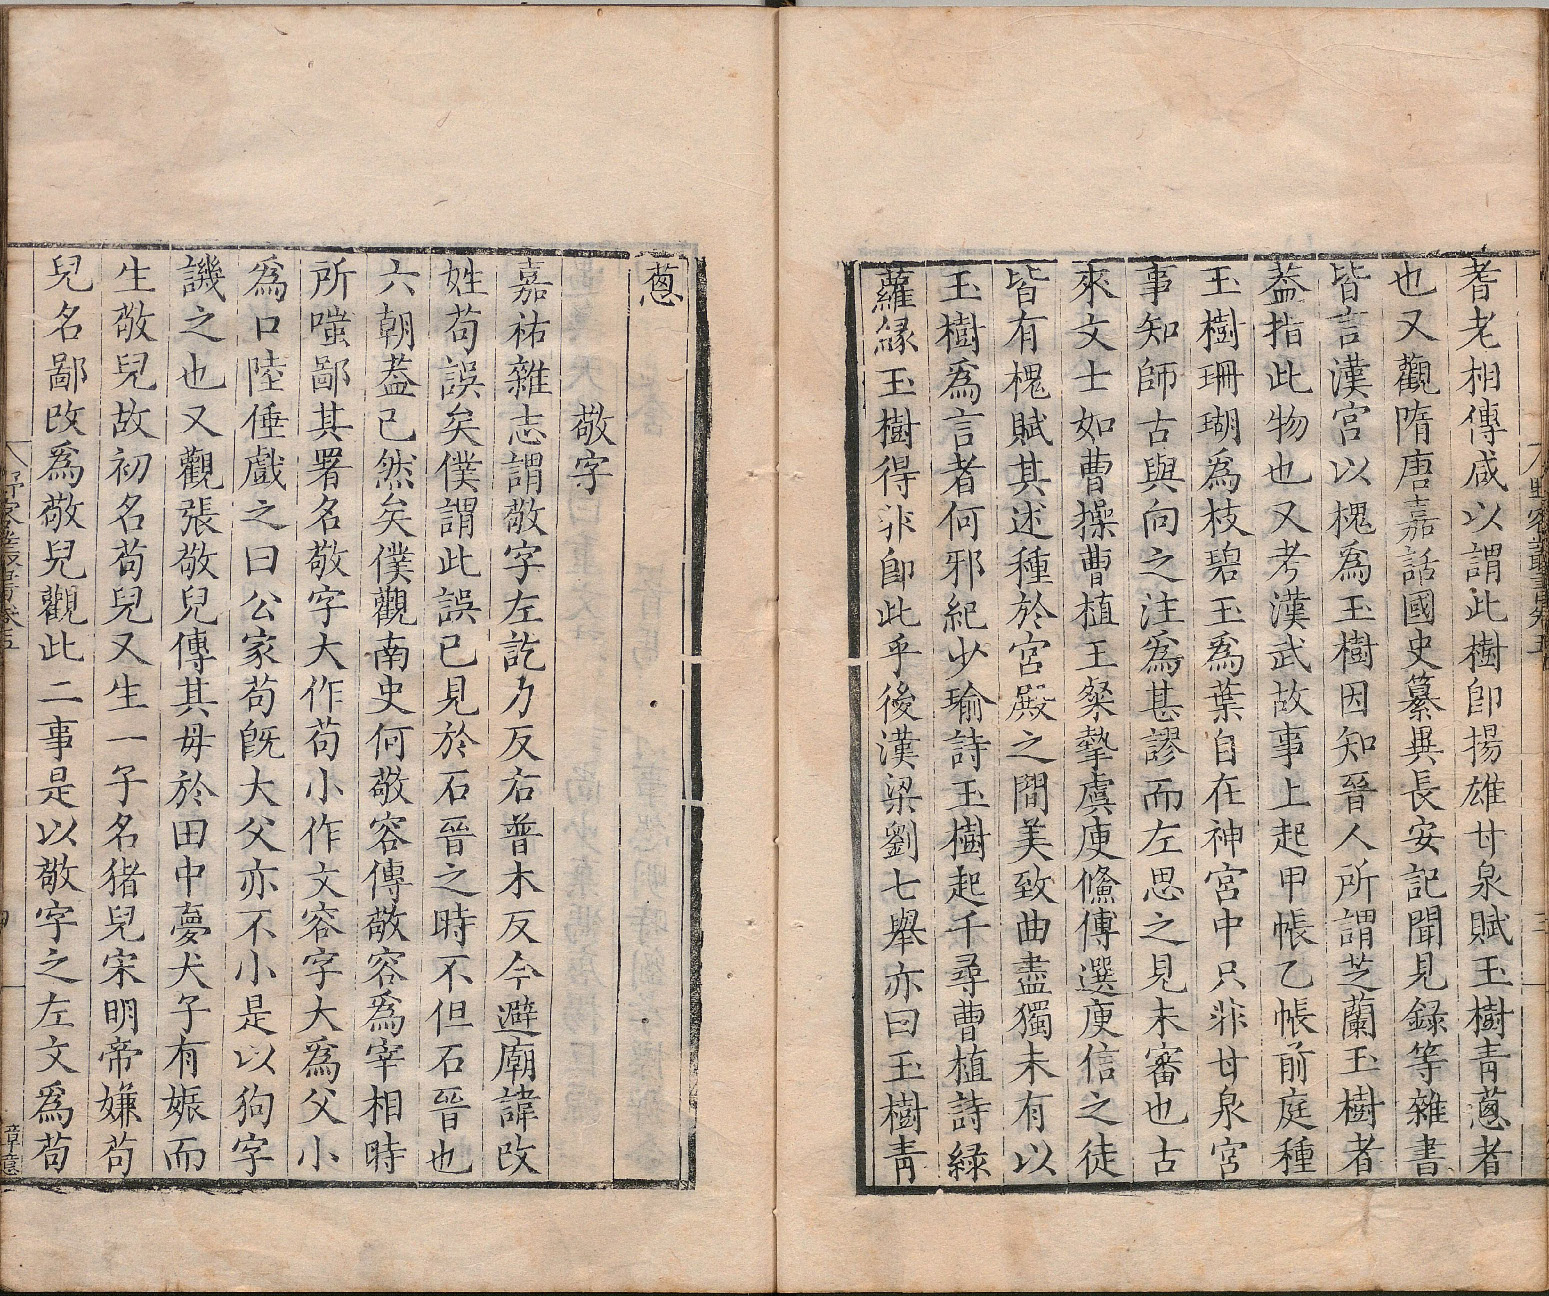 耆老相傳咸以謂此樹即揚雄甘泉賦玉樹青蔥者
也又觀隋唐嘉話國史纂異長安記聞見録等雜書
皆言漢宮以槐爲玉樹因知晉人所謂芝蘭玉樹者
葢指此物也又考漢武故事上起甲帳乙帳前庭種
玉樹珊瑚爲枝碧玉爲葉自在神宮中只非甘泉宮
事知師古與向之注爲甚謬而左思之見未審也古
來文士如曹操曹植王粲摯虞庾鯈傅選庾信之徒
皆有槐賦其述種於宮殿之間美致曲盡獨未有以
玉樹爲言者何邪紀少瑜詩玉樹起千尋曹植詩緑
蘿緣玉樹得非即此乎後漢梁劉七舉亦曰玉樹青
蔥
敬字
嘉祐雜志謂敬字左訖力反右普木反今避廟諱改
姓苟誤矣僕謂此誤已見於石晉之時不但石晉也
六朝葢已然矣僕觀南史何敬容傳敬容爲宰相時
所嗤鄙其署名敬字大作苟小作文容字大爲父小
爲口陸倕戲之曰公家苟既大父亦不小是以狗字
譏之也又觀張敬兒傳其母於田中夢犬子有娠而
生敬兒故初名苟兒又生一子名猪兒宋明帝嫌苟
兒名鄙改爲敬兒觀此二事是以敬字之左文爲苟
野客叢書卷五